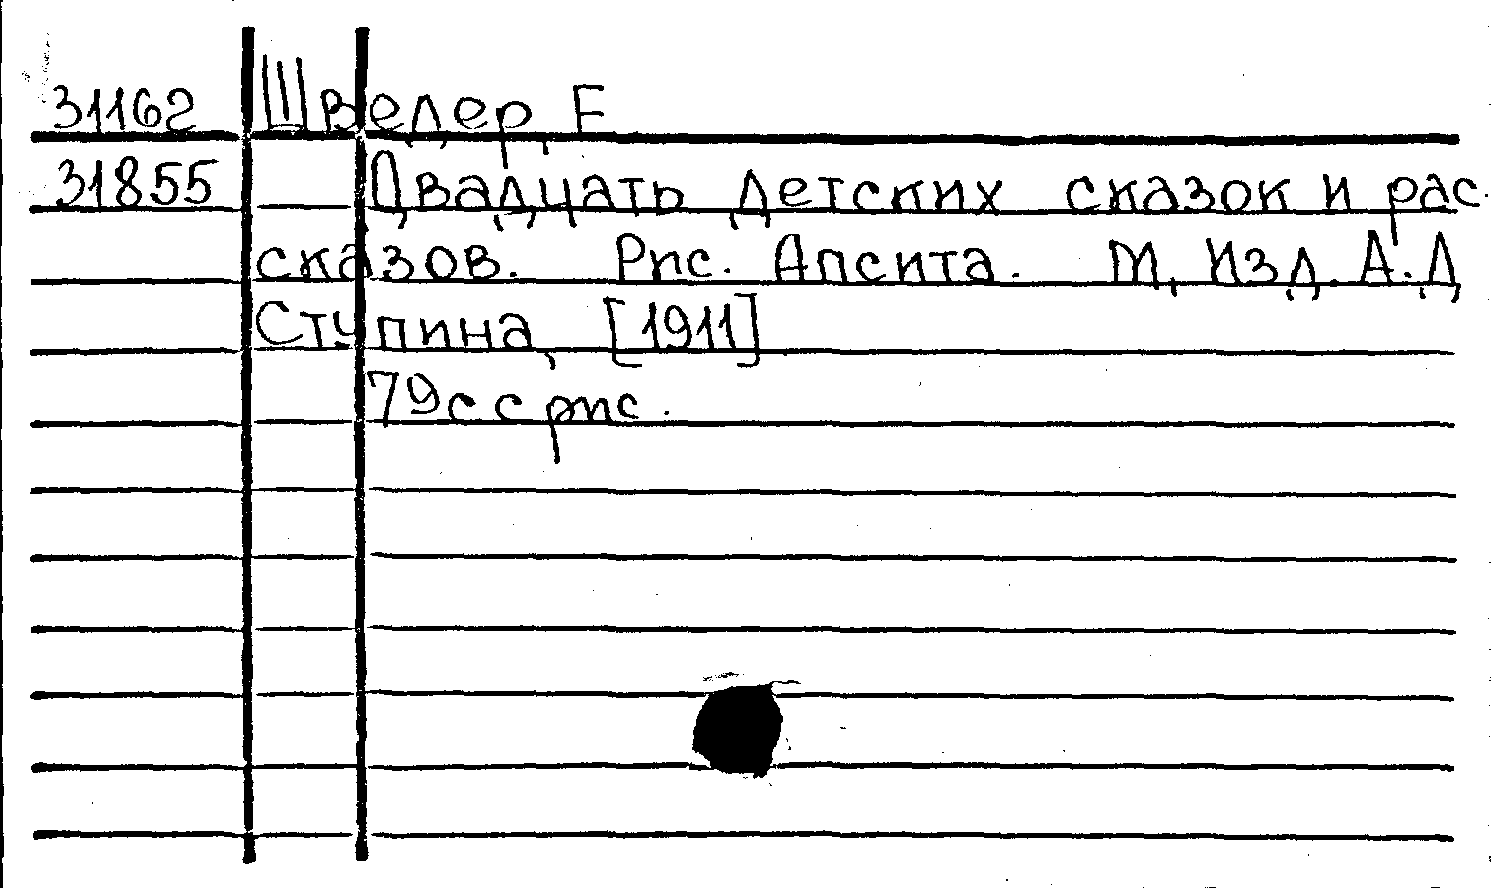 31162 Шведер, Е
31855 Двадцать детских сказок и рас-
сказов. Рис. Апсита. М, Изд. А.Д
Ступина, [1911]
79с с рис.